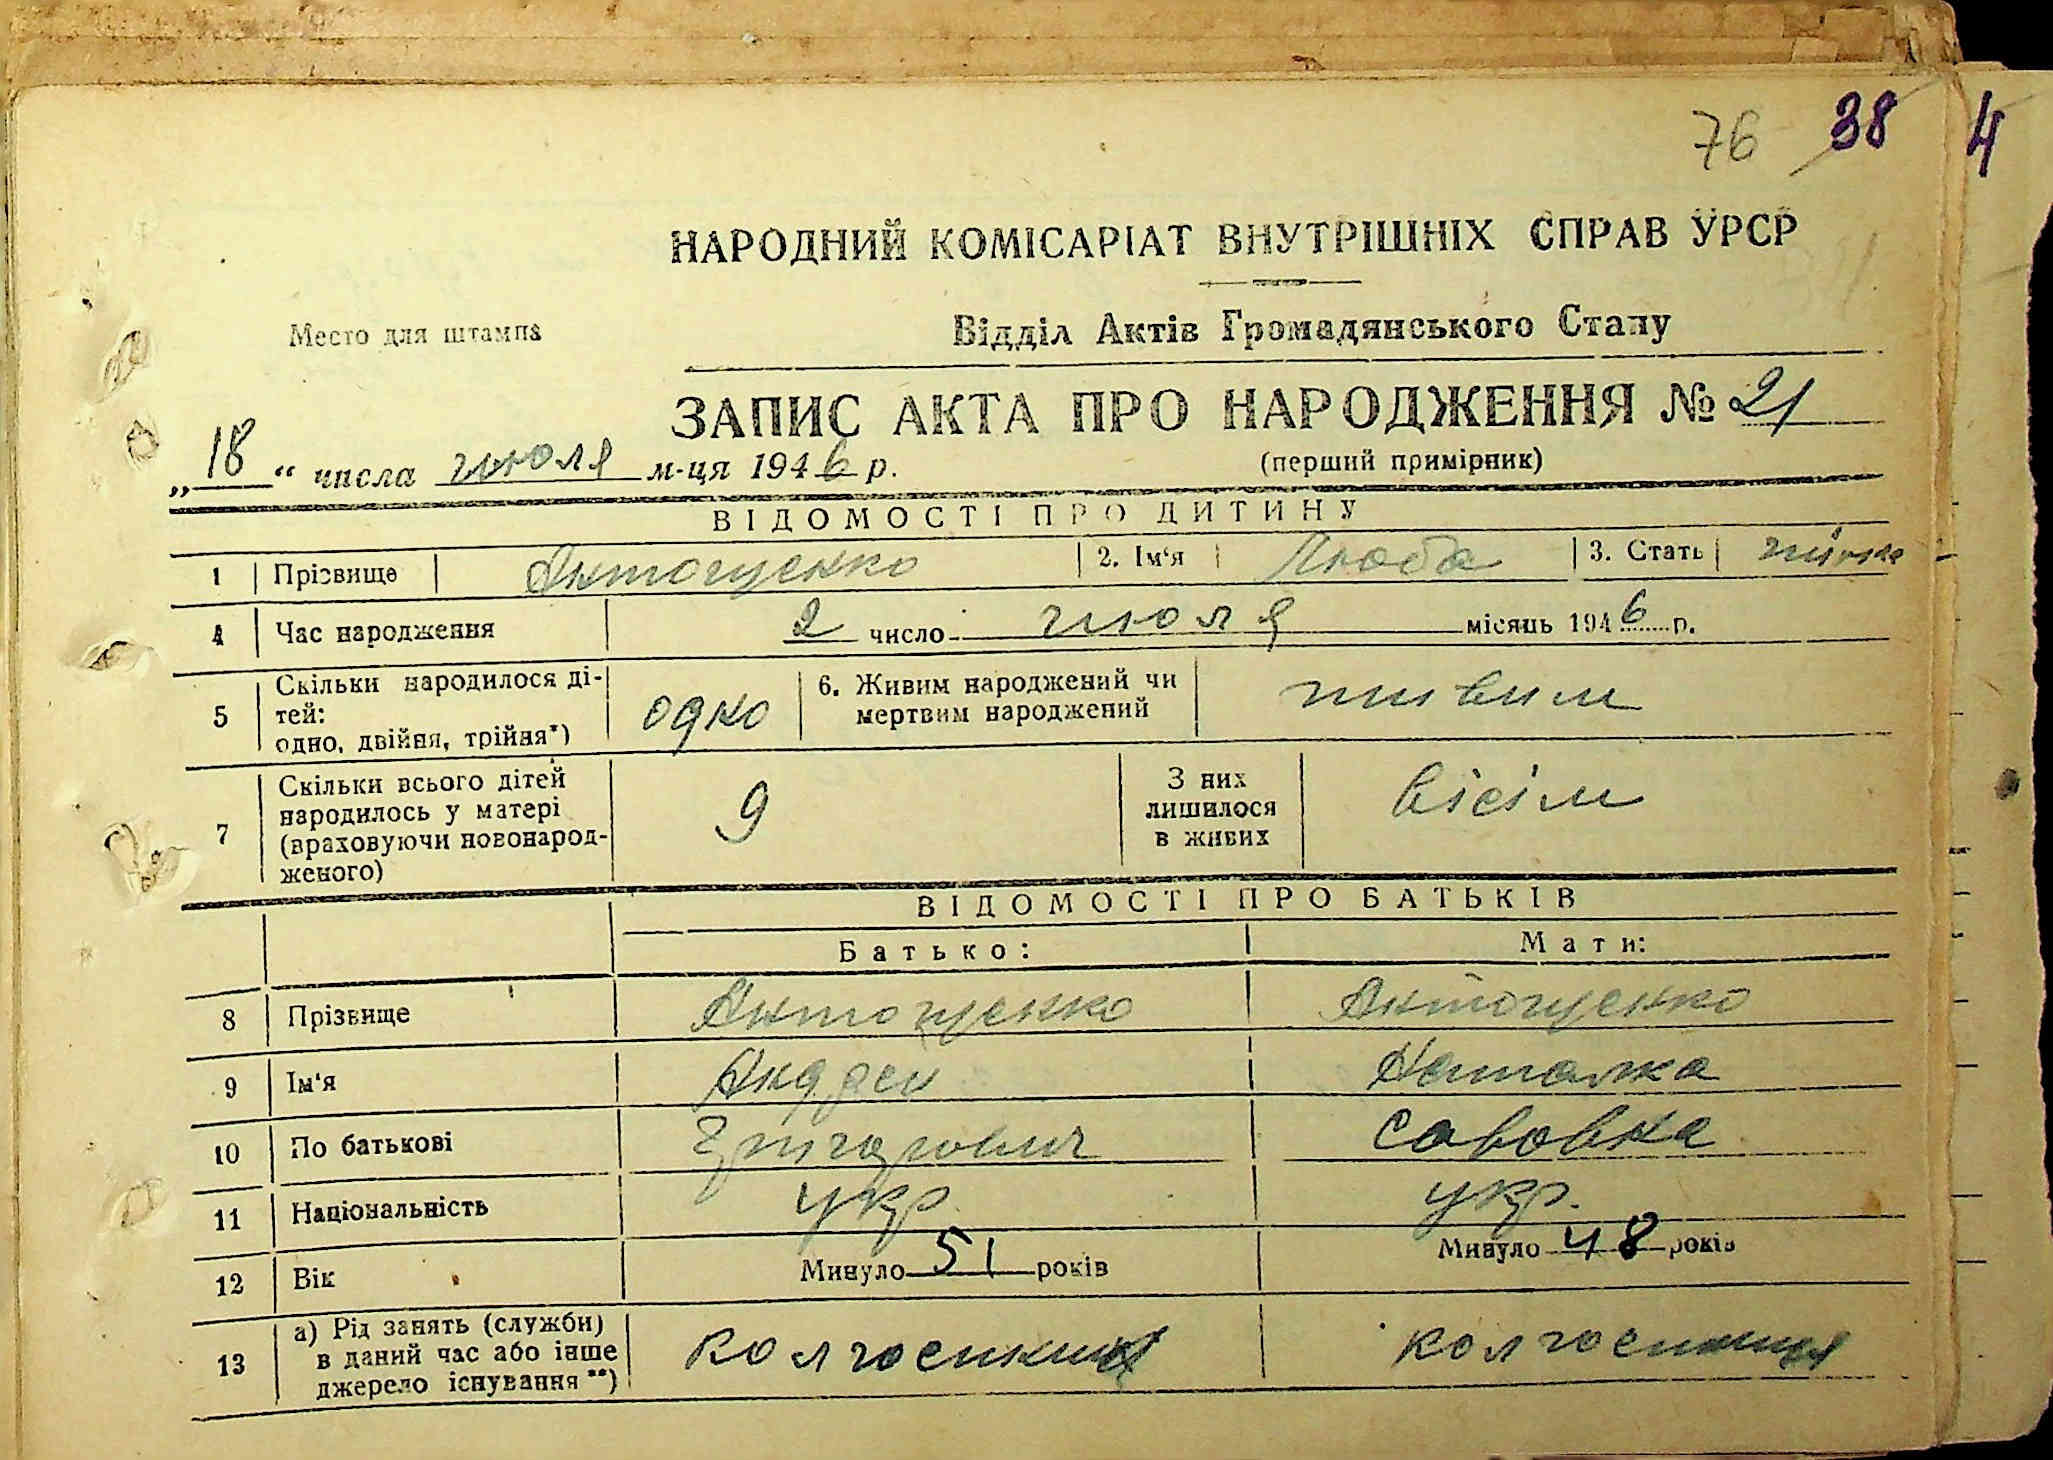 76 38 4
НАРОДНИЙ КОМІСАРІАТ ВНУТРІШНІХ СПРАВ УРСР
Место для штампа
Відділ Актів Громадянського Стану
ЗАПИС АКТА ПРО НАРОДЖЕННЯ № 21
„ 18 “ числа июля м-ця 1946 р.
(перший примірник)
ВІДОМОСТІ ПРО ДИТИНУ
1 Прізвище Антощенко 2. Ім‘я Люба 3. Стать жіноча
4 Час народження 2 число июля місяць 1946 р.
5 Скільки народилося ді-
тей:
одно, двійня, трійня*) одно
6. Живим народжений чи
мертвим народжений живим
7 Скільки всього дітей
народилось у матері
(враховуючи новонарод-
женого) 9
З них
лишилося
в живих вісім
ВІДОМОСТІ ПРО БАТЬКІВ
Батько: Мати:
8 Прізвище Антощенко Антощенко
9 Ім‘я Андрей Наталка
10 По батькові Григорович Савовна
11 Національність укр. укр.
12 Вік Минуло 51 років Минуло 48 років
13 а) Рід занять (служби)
в даний час або інше
джерело існування **) колгоспник колгоспниця